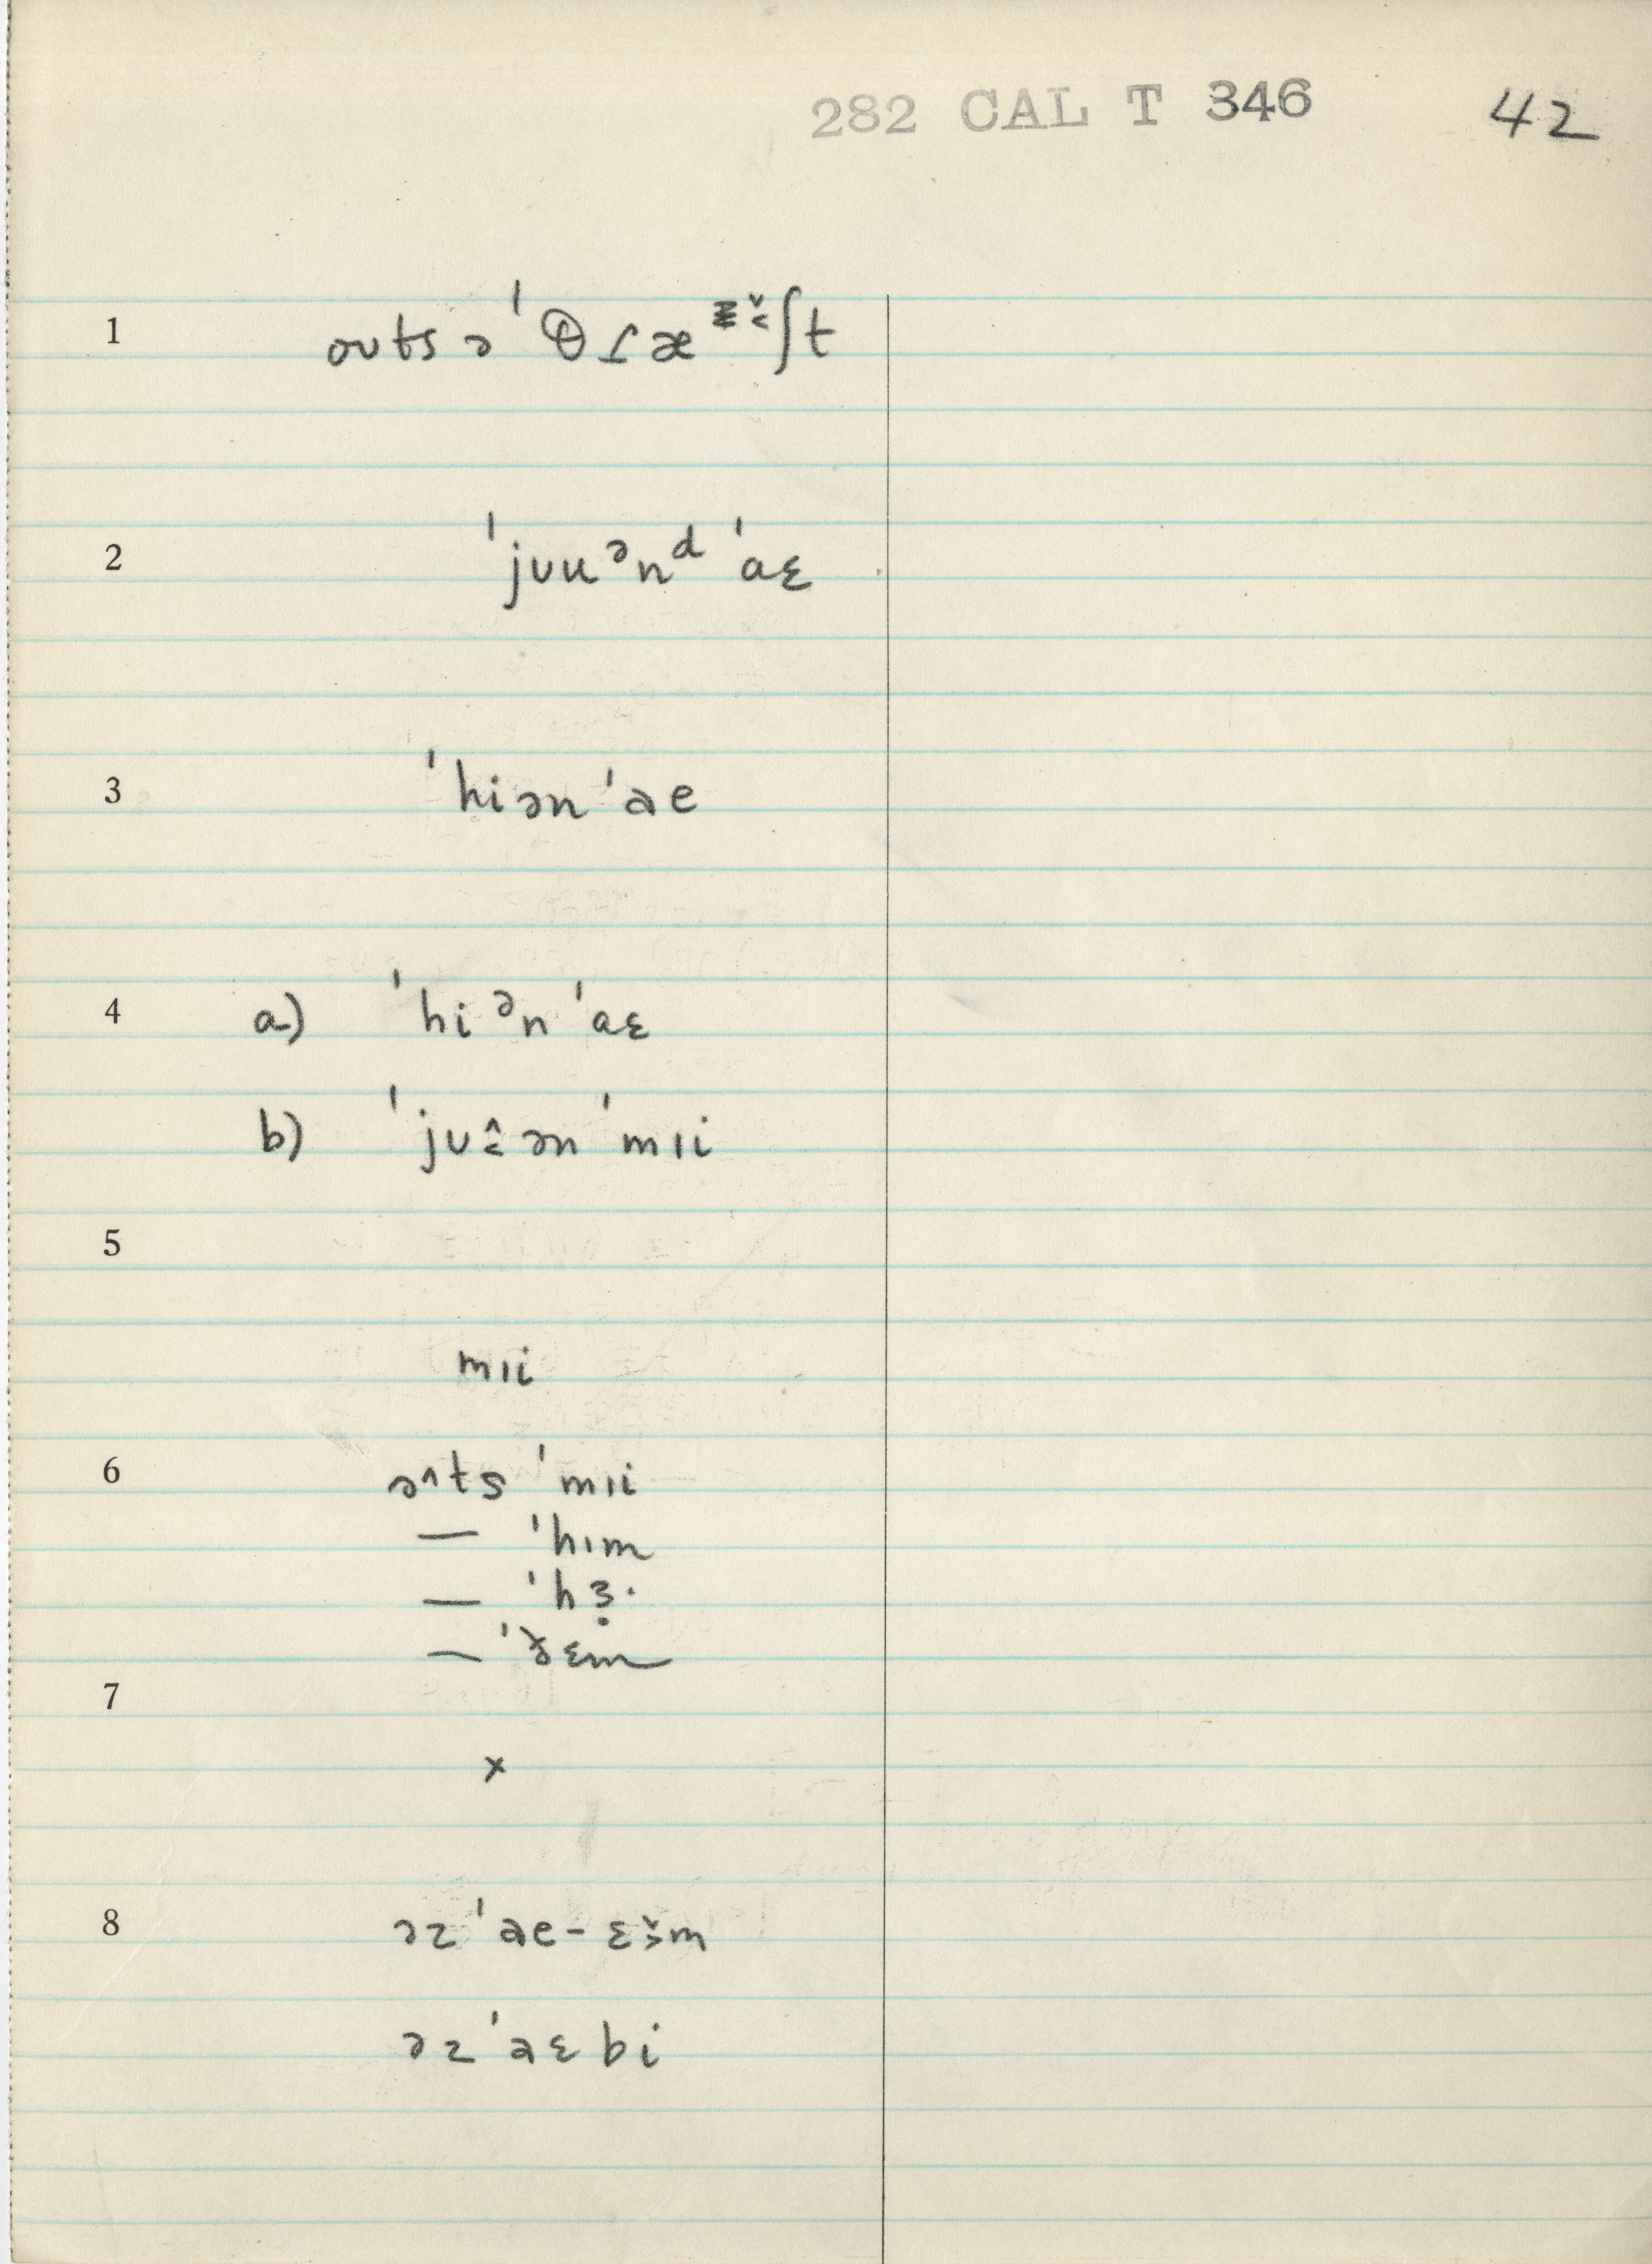 282 CAL T 346 42
1 oʊts ə ˈθɾæɛ̌˂ʃt
2 ˈjʊuᵊnᵈ ˈaɛ
3 ˈhiən ˈae
4 a) ˈhi ᵊn ˈaɛ
b) ˈjʊ ən ˈmɪi
5
mɪi
6 ə^ts ˈmɪi
— ˈhɪm
— ˈhɜ̣·
— ˈðɛm
7
x
8 əz ˈae-ɛ̌˃m
əz ˈaɛ bi